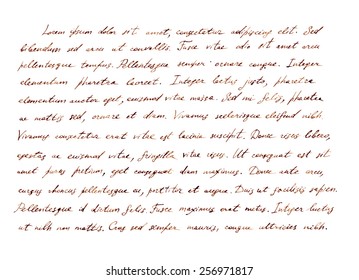 Lorem ipsum dolor sit amet, consectetur adipiscing elit. Sed
bibendum sed arcu ut convallis. Fusce vitae odio sit amet arcu
pellentesque tempus. Pellentesque semper ornare congue. Integer
elementum pharetra laoreet. Integer luctus justo, pharetra
elementum auctor eget, euismod vitae massa. Sed mi felis, pharetra
ac mattis sed, ornare et diam. Vivamus scelerisque eleifend nibh.
Vivamus consectetur erat vitae est lacinia suscipit. Donec risus libero,
egestas ac euismod vitae, fringilla vitae risus. Ut consequat est sit
amet purus pretium, eget consequat diam maximus. Donec ante arcu,
cursus rhoncus pellentesque ac, porttitor et augue. Duis ut facilisis sapien.
Pellentesque id dictum felis. Fusce maximus erat metus. Integer luctus
ut nibh non mattis. Cras sed semper mauris, congue ultricies nibh.
shutterstock.com · 256971817